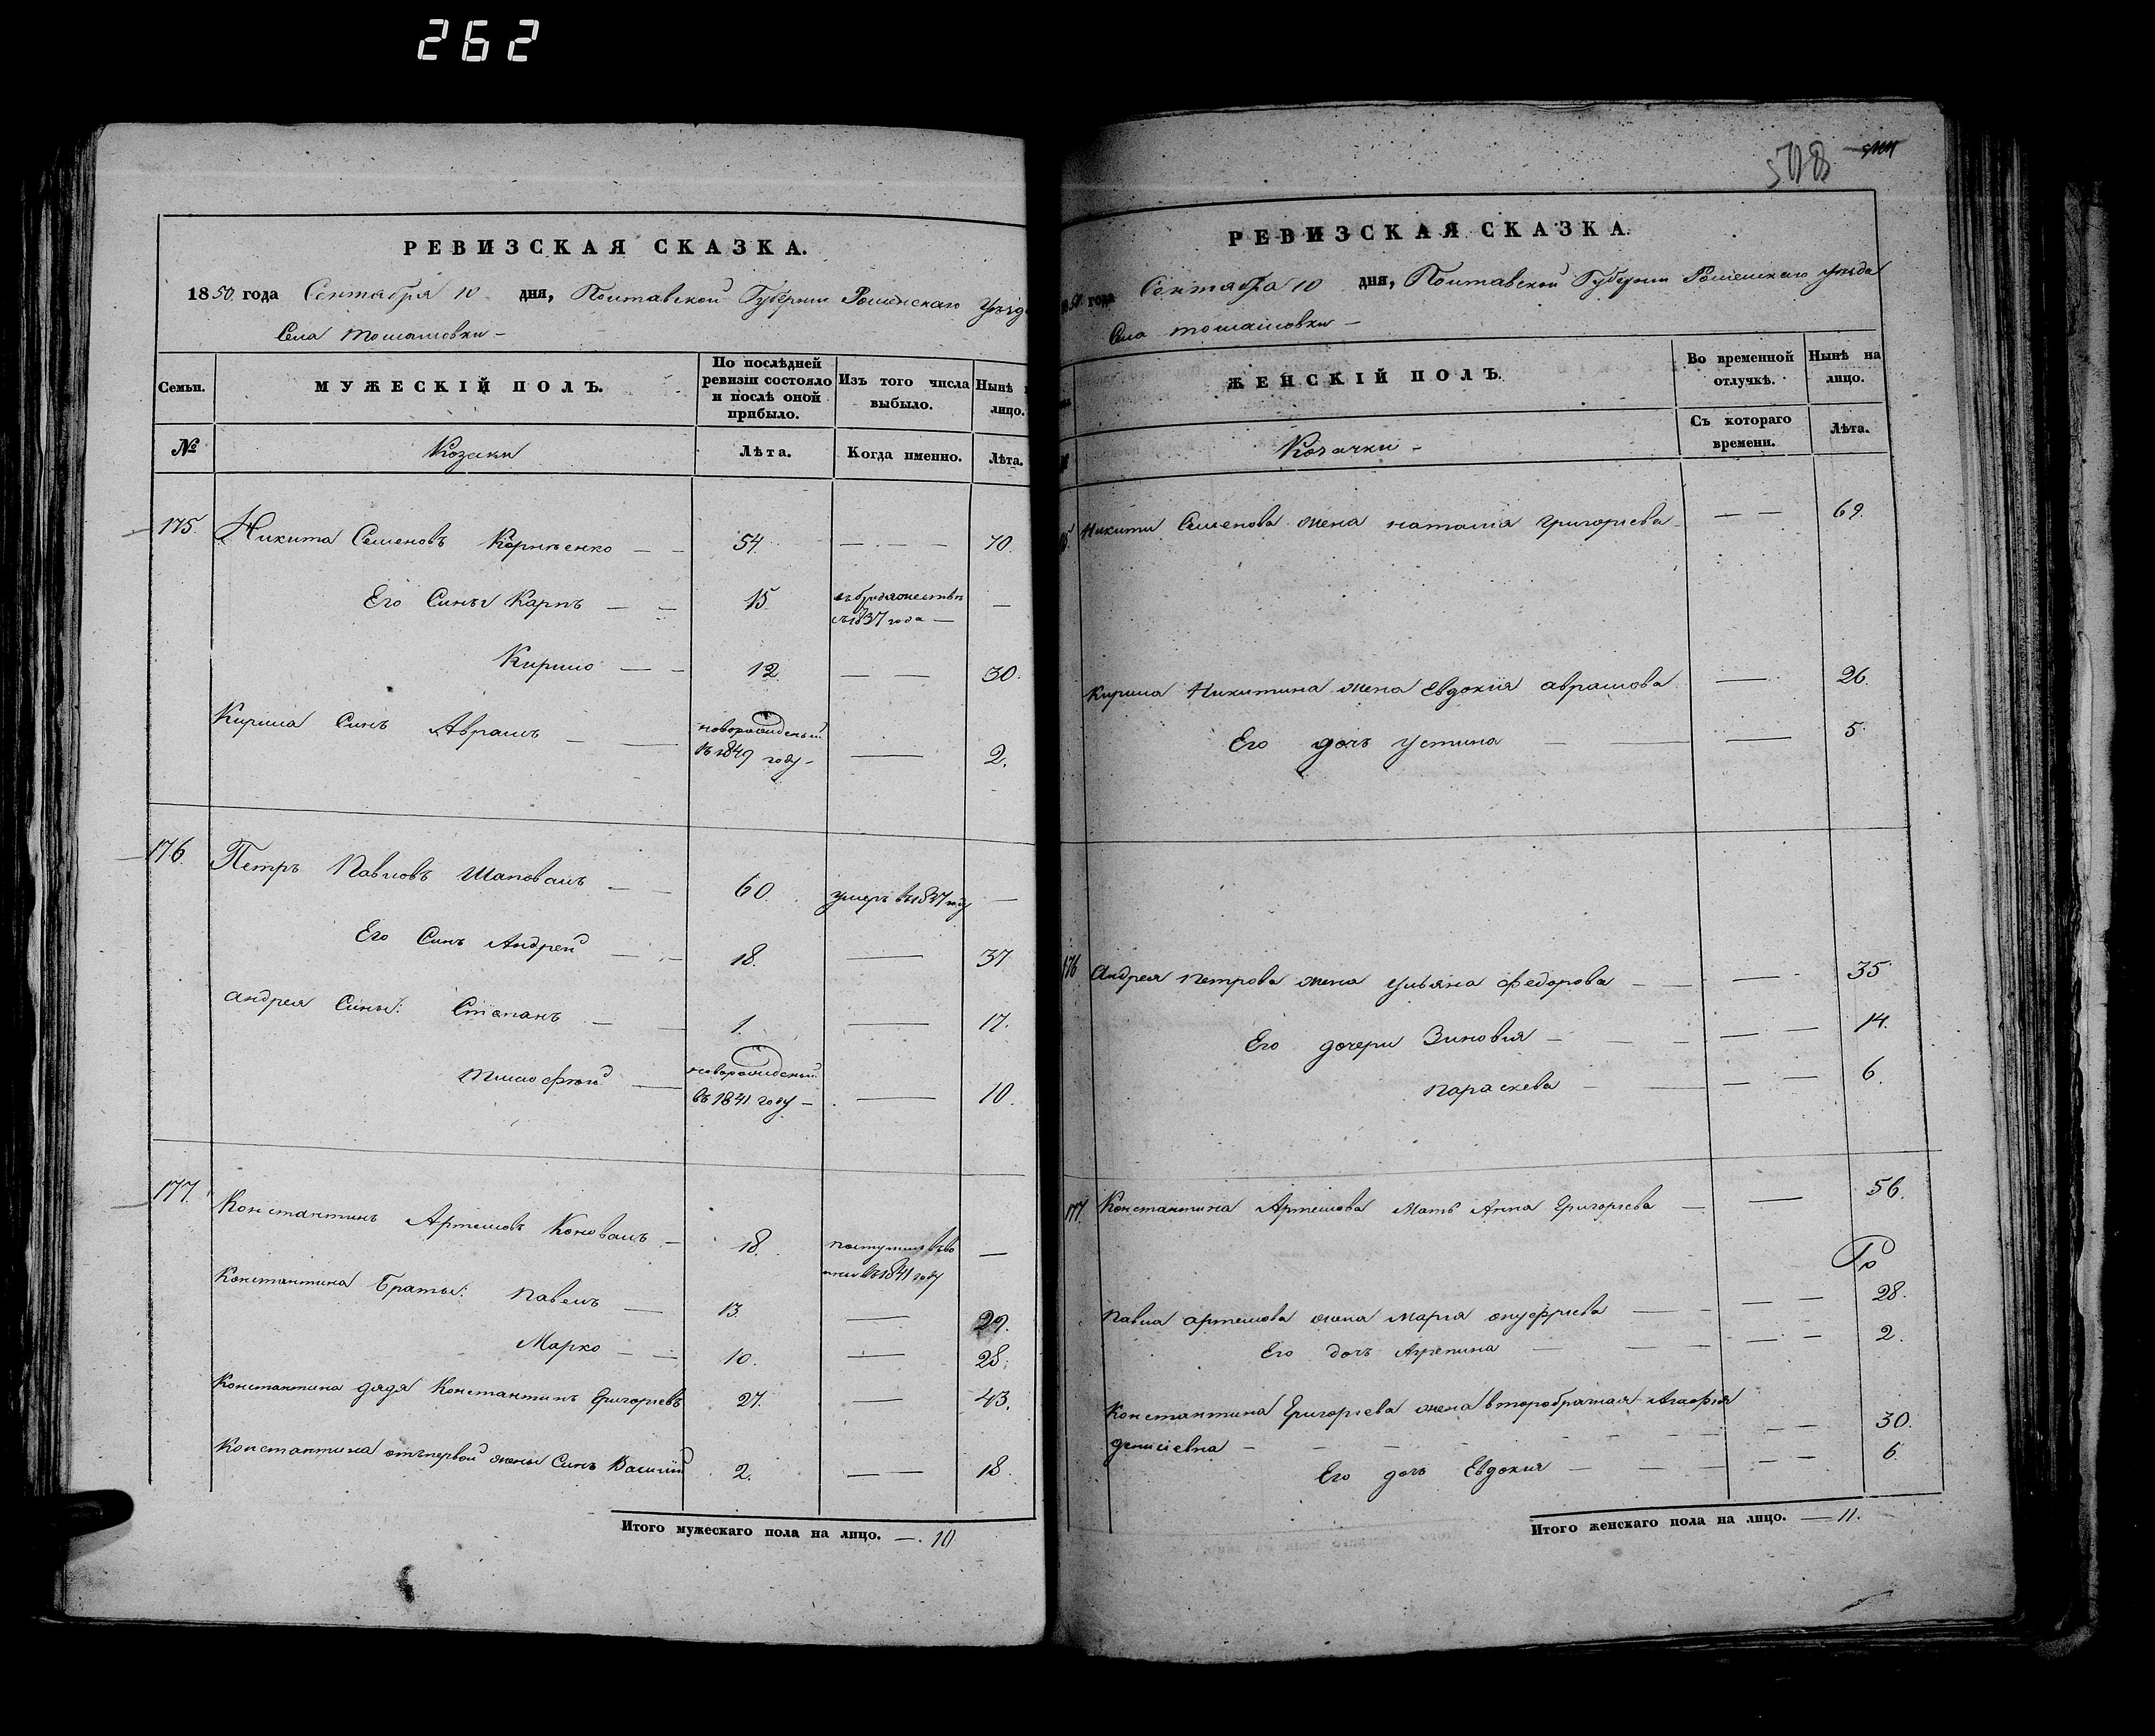 262
РЕВИЗСКАЯ СКАЗКА.
1850 года Сентября 10 дня, Полтавской Губернии Роменскаго Уѣзда
Села Томашовки
Семьи. МУЖЕСКІЙ ПОЛЪ. По послѣдней ревизіи состояло и послѣ оной прибыло. Изъ того числа выбыло. Нынѣ лицо.
№ Козаки Лѣта. Когда именно. Лѣта.
175. Никита Семеновъ Корнѣенко — — 54. — — 70.
Его Сины Карпъ — — 15. въ бродяжествѣ съ 1837 года — —
Кирило — — 12. — — 30.
Кирила Синъ Аврамъ — — новорожденый въ 1849 году — — 2.
176. Петръ Павловъ Шаповалъ — — 60. умеръ въ 1837 году —
Его Синъ Андрей — — 18. — 37
Андрея Сины: Степанъ — — 1. — 17.
Тимофѣй — новорожденый въ 1841 году — — 10.
177. Константинъ Артемовъ Коновалъ — 18. въ 1841 году —
Константина Браты: Павелъ — 13. — 29.
Марко — — 10. — 28.
Константина дядя Константинъ Григорьевъ 27. — 43.
Константина отъ первой жены Синъ Василій 2. — — 18.
Итого мужескаго пола на лицо. — 10
508
РЕВИЗСКАЯ СКАЗКА.
1850 года Сентября 10 дня, Полтавской Губернии Роменскаго уѣзда
Села Томашовки —
ЖЕНСКІЙ ПОЛЪ. Во временной отлучкѣ. Нынѣ на лицо.
Козачки — Съ котораго времени. Лѣта.
175. Никиты Семенова жена Наталія Григорьева — — 69.
Кирила Никитина жена Евдокия Аврамова — 26.
Его дочь Устина — — — 5.
176 Андрея Петрова жена Ульяна Федорова — — — 35
Его дочери Зиновия — — — — 14.
Параскева — — — — 6.
177. Константина Артемова Мать Анна Григорьева — — 56.
Павла Артемова жена Мария Онуфриева — — — 28.
Его дочь Агрепина — — — — 2.
Константина Григорьева жена второбрачная Агафия
Денисіевна — — — — 30.
Его дочь Евдокия — — — — 6.
Итого женскаго пола на лицо. — 11.